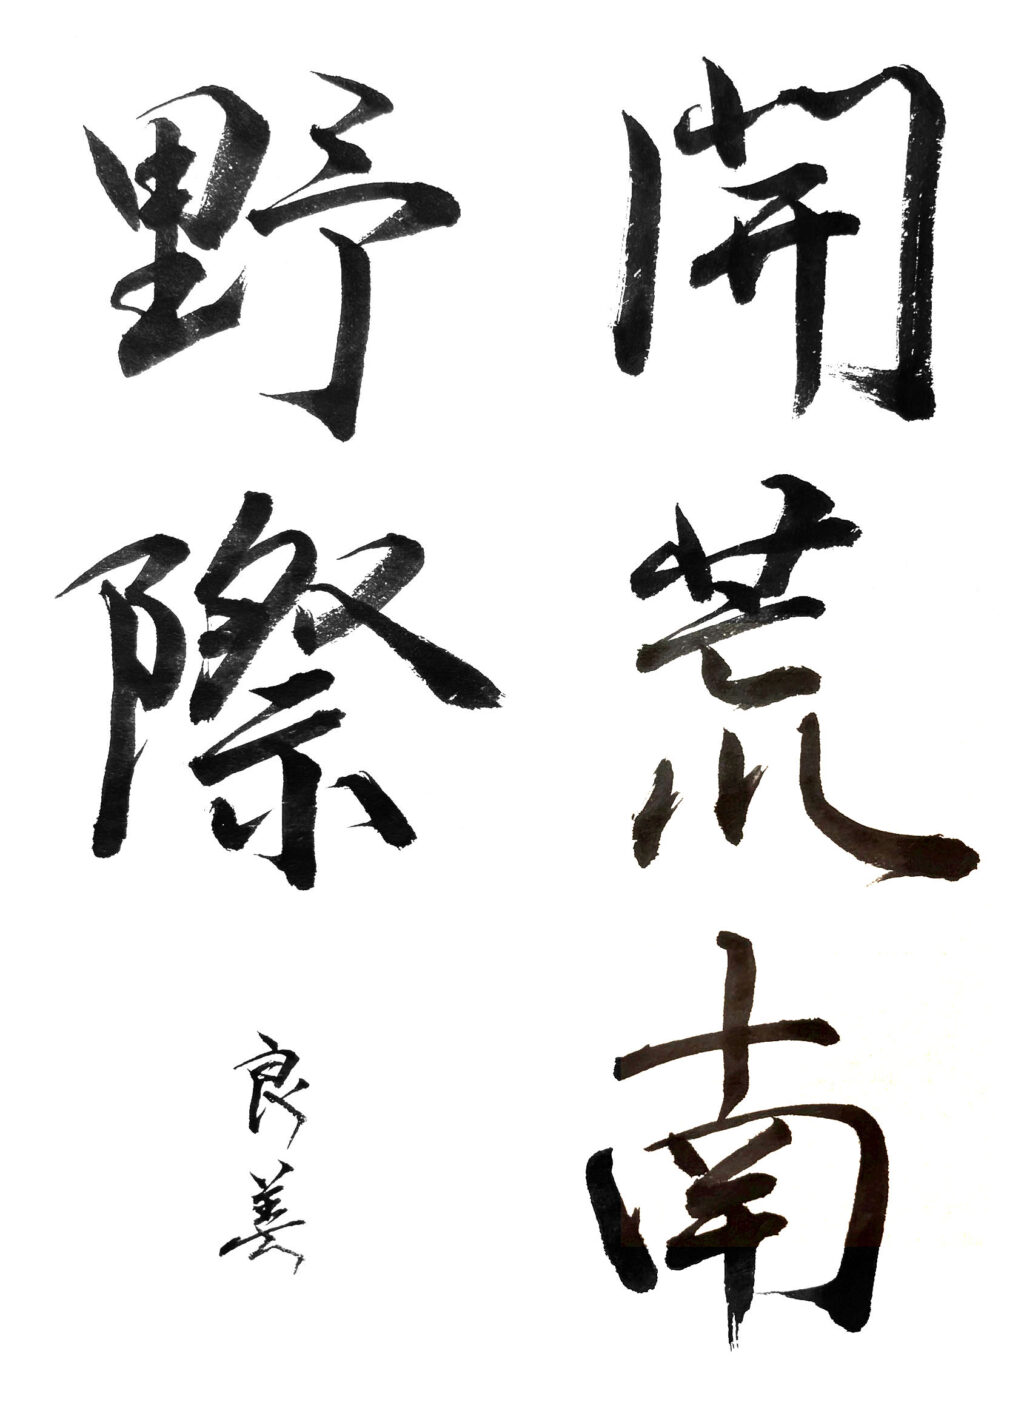 開荒南
野際
良善